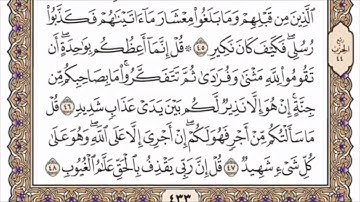 الَّذِينَ مِن قَبْلِهِمْ وَمَا بَلَغُوا۟ مِعْشَارَ مَآ ءَاتَيْنَٰهُمْ فَكَذَّبُوا۟
رُسُلِى ۖ فَكَيْفَ كَانَ نَكِيرِ ٤٥ ۞ قُلْ إِنَّمَآ أَعِظُكُم بِوَٰحِدَةٍ ۖ أَن
تَقُومُوا۟ لِلَّهِ مَثْنَىٰ وَفُرَٰدَىٰ ثُمَّ تَتَفَكَّرُوا۟ ۚ مَا بِصَاحِبِكُم مِّن
جِنَّةٍ ۚ إِنْ هُوَ إِلَّا نَذِيرٌ لَّكُم بَيْنَ يَدَىْ عَذَابٍ شَدِيدٍ ٤٦ قُلْ
مَا سَأَلْتُكُم مِّنْ أَجْرٍ فَهُوَ لَكُمْ ۖ إِنْ أَجْرِىَ إِلَّا عَلَى ٱللَّهِ ۖ وَهُوَ عَلَىٰ
كُلِّ شَىْءٍ شَهِيدٌ ٤٧ قُلْ إِنَّ رَبِّى يَقْذِفُ بِٱلْحَقِّ عَلَّٰمُ ٱلْغُيُوبِ ٤٨
٤٣٣